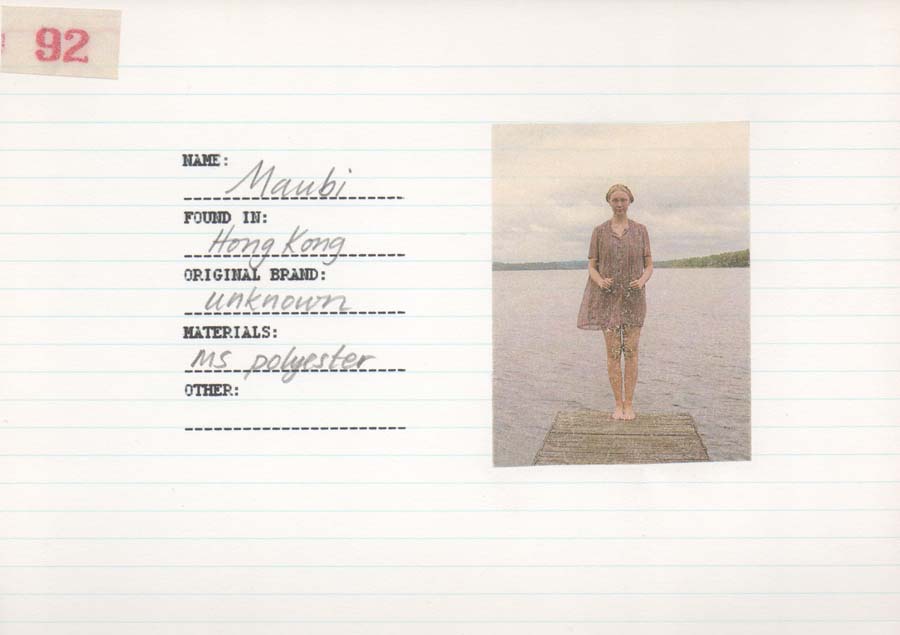 92
NAME:
Maubi
FOUND IN:
Hong Kong
ORIGINAL BRAND:
unknown
MATERIALS:
MS polyester
OTHER: